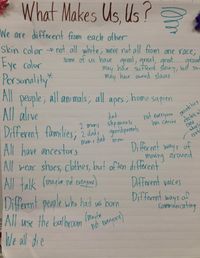 What Makes Us, Us?
We are different from each other
Skin color → not all white, were not all from one race,
Eye color some of us have great, great, great... grand
may have suffered slavery, and so
Personality* may have owned slaves
All people, all animals, all apes, homo sapien
All alive
Different families, 2 moms, 2 dads, mom + dad
dad
stepparents
grandparents
mom
not everyone
All have ancestors
Different ways of
moving around
All wear shoes, clothes, but often different
All talk (maybe not everyone)
Different voices
Different people who had us born
Different ways of
communicating
All use the bathroom (maybe
not everyone)
We all die